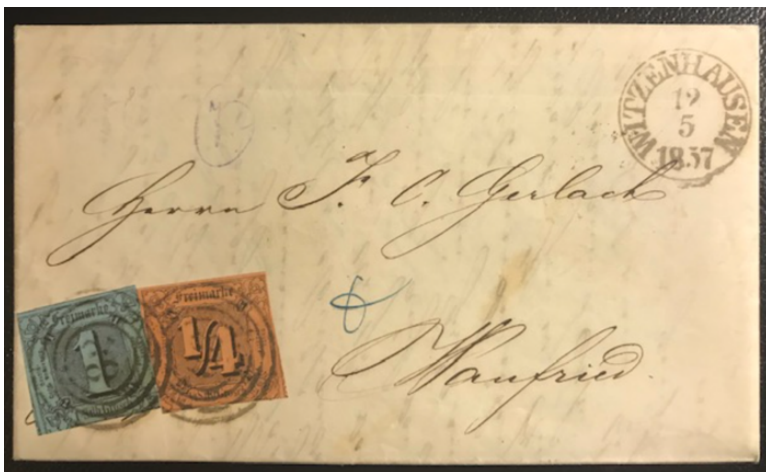 WITZENHAUSEN
12
5
1857
Herrn J. C. Gerlach
Wanfried.
Freimarke
1
Freimarke
1/4